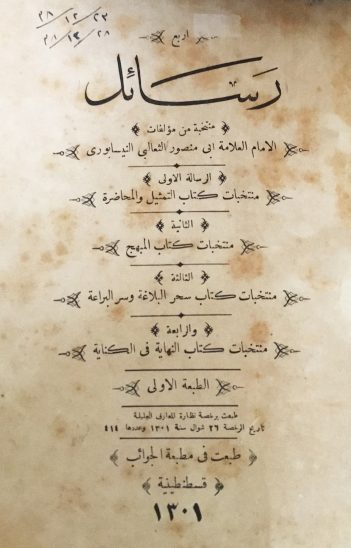 اربع
رسائل
منتخبة من مؤلفات
الامام العلامة ابى منصور الثعالبي النيسابورى
الرسالة الاولى
منتخبات كتاب التمثيل والمحاضرة
الثانية
منتخبات كتاب المبهج
الثالثة
منتخبات كتاب سحر البلاغة وسر البراعة
والرابعة
منتخبات كتاب النهاية فى الكناية
الطبعة الاولى
طبعت برخصة نظارة المعارف الجليلة
تاريخ الرخصة ٢٦ شوال سنة ١٣٠١ وعددها ٤١٤
طبعت فى مطبعة الجوائب
قسطنطينية
١٣٠١